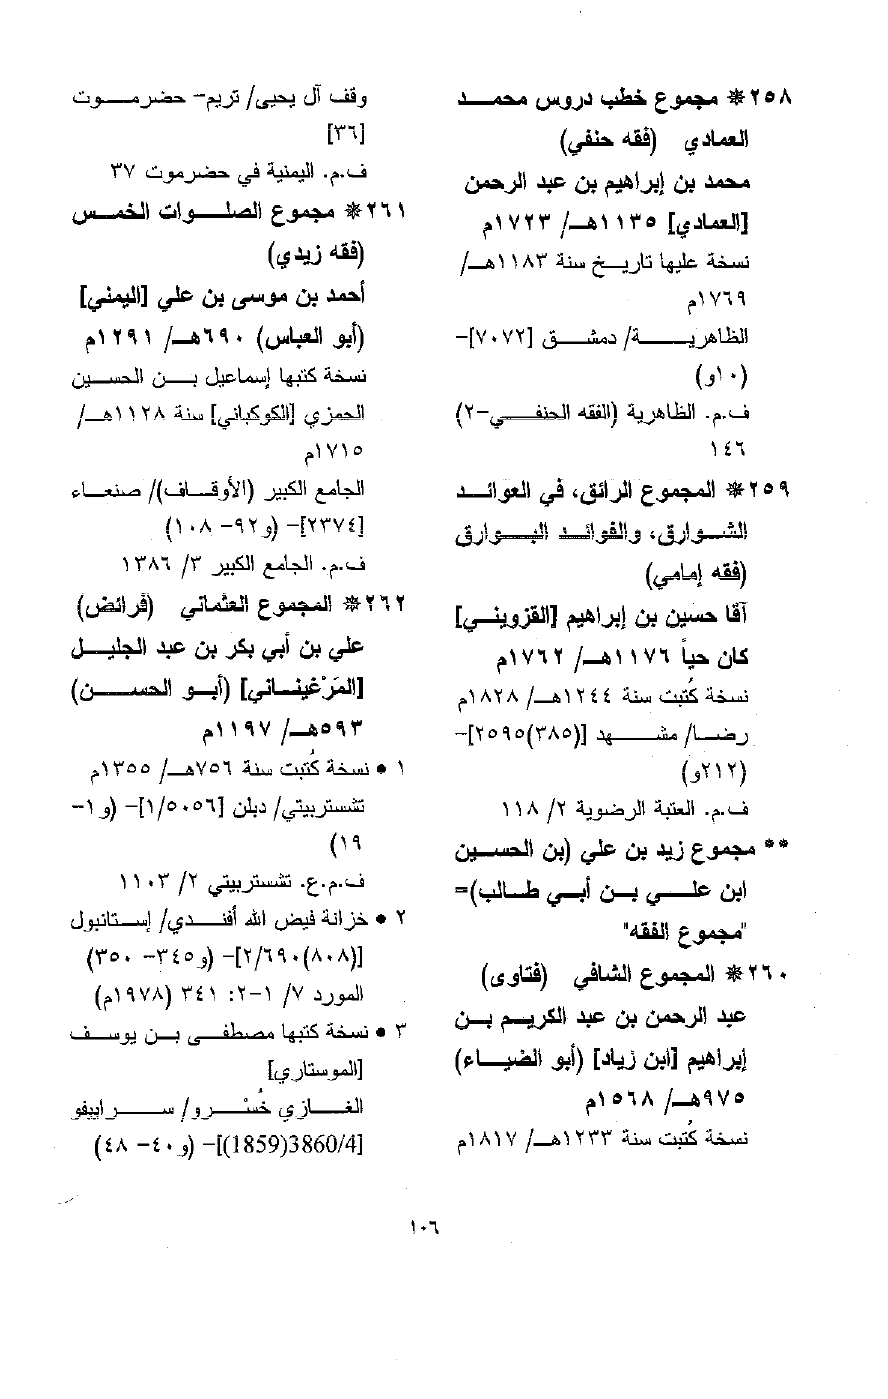 ٢٥٨* مجموع خطب دروس محمد
العمادي (فقه حنفي)
محمد بن إبراهيم بن عبد الرحمن
[العمادي] ١١٣٥هـ/ ١٧٢٣م
نسخة عليها تاريخ سنة ١١٨٣هـ/
١٧٦٩م
الظاهرية/ دمشق [٧٠٧٢]-
(١٠و)
ف.م. الظاهرية (الفقه الحنفي-٢)
١٤٦
٢٥٩* المجموع الرائق، في العوائد
الشوارق، والفوائد البوارق
(فقه إمامي)
آقا حسين بن إبراهيم [القزويني]
كان حياً ١١٧٦هـ/ ١٧٦٢م
نسخة كُتبت سنة ١٢٤٤هـ/ ١٨٢٨م
رضا/ مشهد [(٣٨٥)٢٥٩٥]-
(٢١٢و)
ف.م. العتبة الرضوية ٢/ ١١٨
** مجموع زيد بن علي (بن الحسين
ابن علي بن أبي طالب)=
"مجموع الفقه"
٢٦٠* المجموع الشافي (فتاوى)
عبد الرحمن بن عبد الكريم بن
إبراهيم [ابن زياد] (أبو الضياء)
٩٧٥هـ/ ١٥٦٨م
نسخة كُتبت سنة ١٢٣٣هـ/ ١٨١٧م
وقف آل يحيى/ تريم- حضرموت
[٣٦]
ف.م. اليمنية في حضرموت ٣٧
٢٦١* مجموع الصلوات الخمس
(فقه زيدي)
أحمد بن موسى بن علي [اليمني]
(أبو العباس) ٦٩٠هـ/ ١٢٩١م
نسخة كتبها إسماعيل بن الحسين
الحمزي [الكوكباني] سنة ١١٢٨هـ/
١٧١٥م
الجامع الكبير (الأوقاف)/ صنعاء
[٢٣٧٤]- (و٩٢- ١٠٨)
ف.م. الجامع الكبير ٣/ ١٣٨٦
٢٦٢* المجموع العثماني (فرائض)
علي بن أبي بكر بن عبد الجليل
[المَرْغيناني] (أبو الحسن)
٥٩٣هـ/ ١١٩٧م
١ • نسخة كُتبت سنة ٧٥٦هـ/ ١٣٥٥م
تشستربيتي/ دبلن [١/٥٠٥٦]- (و١-
١٩)
ف.م.ع. تشستربيتي ٢/ ١١٠٣
٢ • خزانة فيض الله أفندي/ إستانبول
[(٨٠٨)٢/٦٩٠]- (و٣٤٥- ٣٥٠)
المورد ٧/ ١-٢: ٣٤١ (١٩٧٨م)
٣ • نسخة كتبها مصطفى بن يوسف
[الموستاري]
الغازي خُسْرو/ سراييفو
[3860/4(1859)]- (و٤٠- ٤٨)
١٠٦